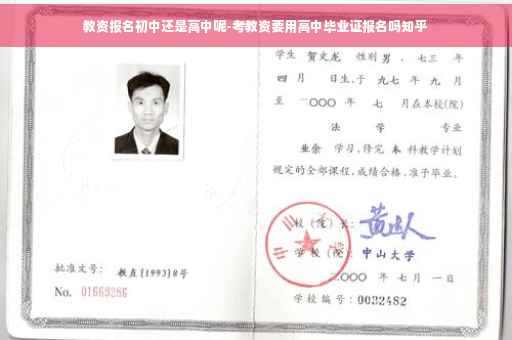 教资报名初中还是高中呢-考教资要用高中毕业证报名吗知乎
学生 贺文龙 性别 男 、七三 年
四 月 日生,于 九七 年 九 月
至 二〇〇〇 年 七 月在本校(院)
法 学 专业
业余 学习,修完 本 科教学计划
规定的全部课程,成绩合格,准予毕业。
校 (院) 长:
学 校 (院): 中山大学
二〇〇〇 年 七 月 一 日
学校编号: 0032482
批准文号: 教直[1993]8号
No. 01669286